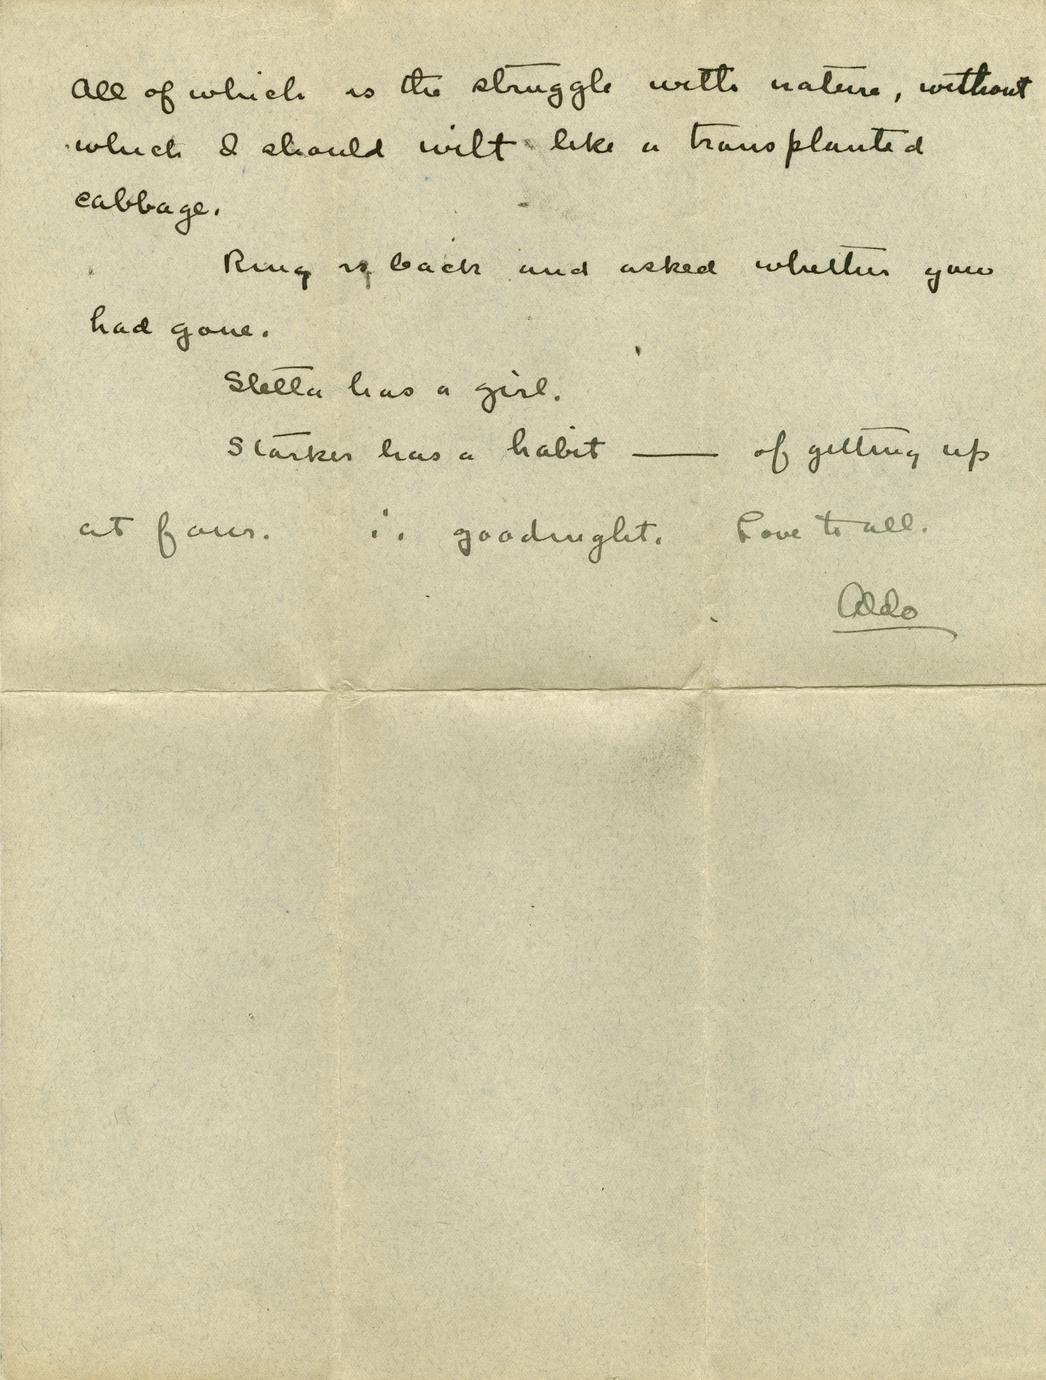 All of which is the struggle with nature, without
which I should wilt like a transplanted
cabbage.
Ring is back and asked whether you
had gone.
Sletta has a girl.
Starker has a habit —— of getting up
at four. ∴ goodnight. Love to all.
Aldo